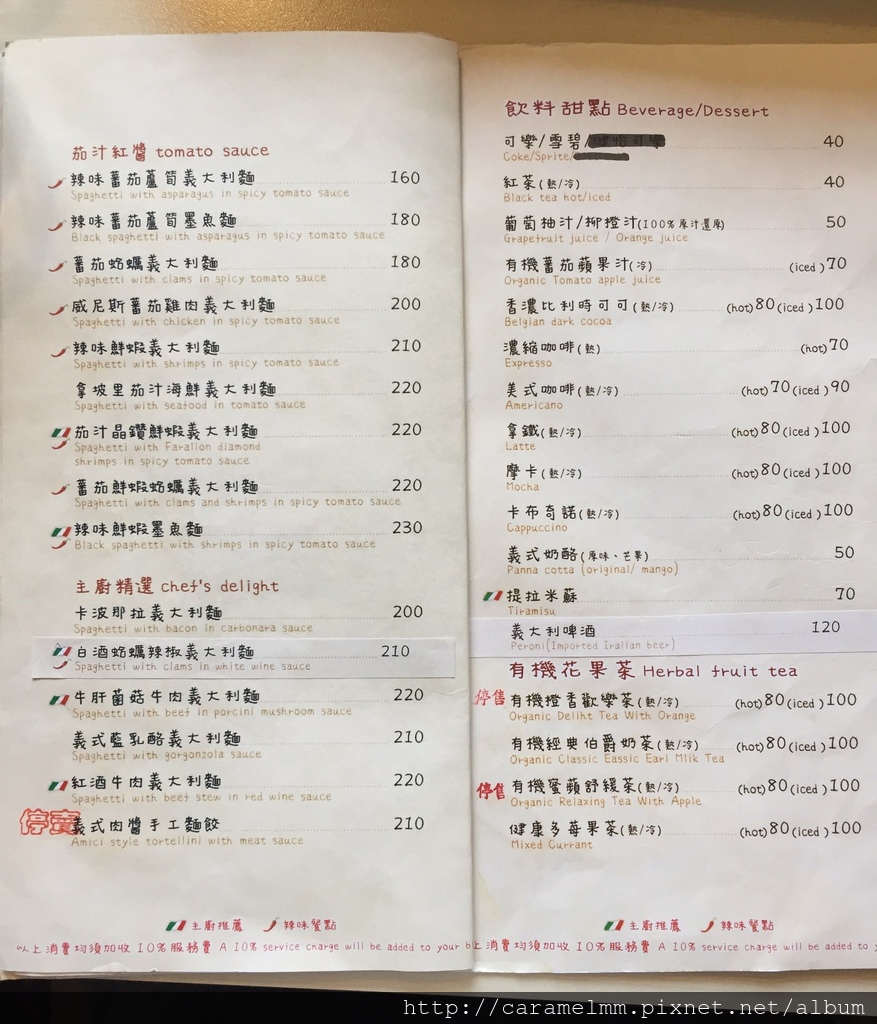 茄汁紅醬 tomato sauce
辣味蕃茄蘆筍義大利麵 160
Spaghetti with asparagus in spicy tomato sauce
辣味蕃茄蘆筍墨魚麵 180
Black spaghetti with asparagus in spicy tomato sauce
蕃茄蛤蠣義大利麵 180
Spaghetti with clams in spicy tomato sauce
威尼斯蕃茄雞肉義大利麵 200
Spaghetti with chicken in spicy tomato sauce
辣味鮮蝦義大利麵 210
Spaghetti with shrimps in spicy tomato sauce
拿坡里茄汁海鮮義大利麵 220
Spaghetti with seafood in tomato sauce
茄汁晶鑽鮮蝦義大利麵 220
Spaghetti with Farallon diamond
shrimps in spicy tomato sauce
蕃茄鮮蝦蛤蠣義大利麵 220
Spaghetti with clams and shrimps in spicy tomato sauce
辣味鮮蝦墨魚麵 230
Black spaghetti with shrimps in spicy tomato sauce
主廚精選 chef's delight
卡波那拉義大利麵 200
Spaghetti with bacon in carbonara sauce
白酒蛤蠣辣椒義大利麵 210
Spaghetti with clams in white wine sauce
牛肝菌菇牛肉義大利麵 220
Spaghetti with beef in porcini mushroom sauce
義式藍乳酪義大利麵 210
Spaghetti with gorgonzola sauce
紅酒牛肉義大利麵 220
Spaghetti with beef stew in red wine sauce
停賣 義式肉醬手工麵餃 210
Amici style tortellini with meat sauce
主廚推薦 辣味餐點
以上消費均須加收 10%服務費 A 10% service charge will be added to your b
飲料甜點 Beverage/Dessert
可樂/雪碧/ 40
Coke/Sprite/
紅茶(熱/冷) 40
Black tea hot/iced
葡萄柚汁/柳橙汁(100%原汁還原) 50
Grapefruit juice / Orange juice
有機蕃茄蘋果汁(冷) (iced)70
Organic Tomato apple juice
香濃比利時可可(熱/冷) (hot)80(iced)100
Belgian dark cocoa
濃縮咖啡(熱) (hot)70
Expresso
美式咖啡(熱/冷) (hot)70(iced)90
Americano
拿鐵(熱/冷) (hot)80(iced)100
Latte
摩卡(熱/冷) (hot)80(iced)100
Mocha
卡布奇諾(熱/冷) (hot)80(iced)100
Cappuccino
義式奶酪(原味、芒果) 50
Panna cotta (original/ mango)
提拉米蘇 70
Tiramisu
義大利啤酒 120
Peroni(Imported Iralian beer)
有機花果茶 Herbal fruit tea
停售 有機橙香歡樂茶(熱/冷) (hot)80(iced)100
Organic Deliht Tea With Orange
有機經典伯爵奶茶(熱/冷) (hot)80(iced)100
Organic Classic Eassic Earl Mlik Tea
停售 有機蜜蘋舒緩茶(熱/冷) (hot)80(iced)100
Organic Relaxing Tea With Apple
健康多莓果茶(熱/冷) (hot)80(iced)100
Mixed Currant
主廚推薦 辣味餐點
上消費均須加收 10%服務費 A 10% service charge will be added to
http://caramelmm.pixnet.net/album